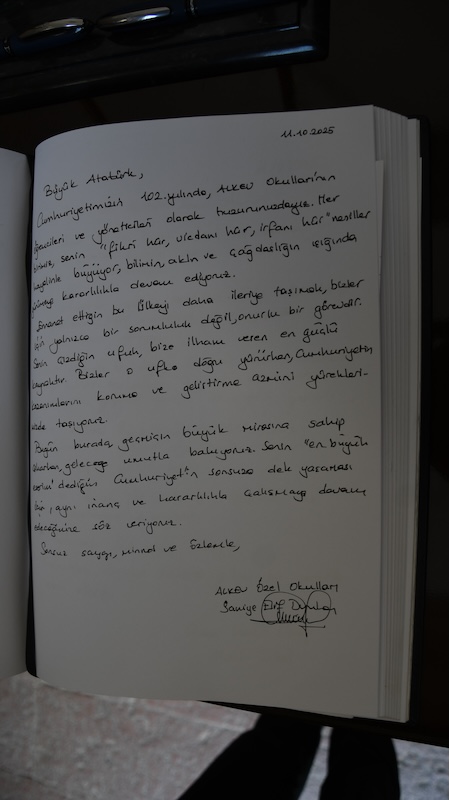 11.10.2025
Büyük Atatürk,
Cumhuriyetimizin 102. yılında, ALKEV Okulları'nın
öğrencileri ve yöneticileri olarak huzurunuzdayız. Her
birimiz, senin "fikri hür, vicdanı hür, irfanı hür" nesiller
hayalinle büyüyor, bilimin, aklın ve çağdaşlığın ışığında
yürümeye kararlılıkla devam ediyoruz.
Emanet ettiğin bu ülkeyi daha ileriye taşımak, bizler
için yalnızca bir sorumluluk değil, onurlu bir görevdir.
Senin çizdiğin ufuk, bize ilham veren en güçlü
kaynaktır. Bizler o ufka doğru yürürken, Cumhuriyetin
kazanımlarını koruma ve geliştirme azmini yürekleri-
mizde taşıyoruz.
Bugün burada, geçmişin büyük mirasına sahip
çıkarken, geleceğe umutla bakıyoruz. Senin "en büyük
eserim" dediğin Cumhuriyet'in sonsuza dek yaşaması
için, aynı inanç ve kararlılıkla çalışmaya devam
edeceğimize söz veriyoruz.
Sonsuz saygı, minnet ve özlemle,
ALKEV Özel Okulları
Saniye Elif